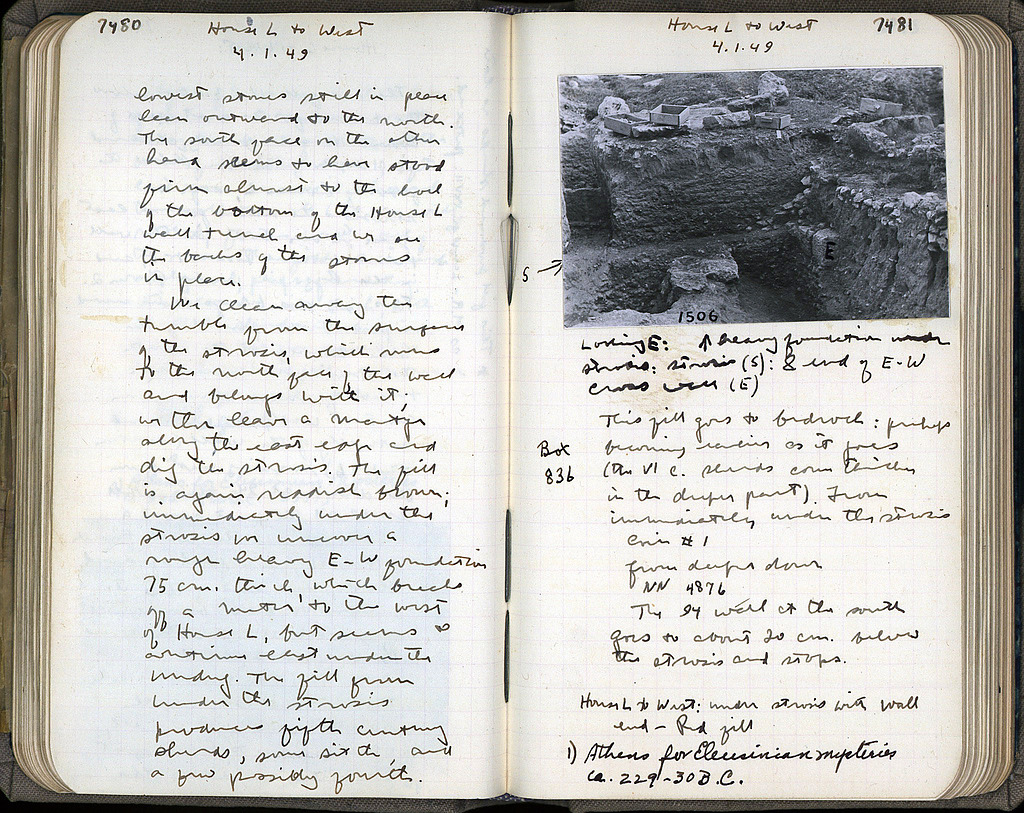 7480
House L to West
4.1.49
lowest stones still in place
lean outward to the north.
The south face on the other
hand seems to have stood
firm almost to the level
of the bottom of the House L
wall trench and we see
the backs of the stones
in place.
We clean away the
tumble from the surface
of the strosis, which runs
to the north face of the wall
and belongs with it;
we then leave a
along the east edge and
dig the strosis. The fill
is again reddish brown;
immediately under the
strosis we uncover a
rough heavy E-W foundation
75 cm. thick, which breaks
off a meter to the west
of House L, but seems to
continue east under the
. The fill from
under the strosis
produces fifth century
sherds, some sixth, and
a few possibly fourth.
House L to West
7481
4.1.49
S
E
1506
Looking E: heavy foundation under
strosis: strosis (S): & end of E-W
cross wall (E)
This fill goes to bedrock: perhaps
becoming earlier as it goes
(the VI c. sherds come thicker
in the deeper part). From
immediately under the strosis
Coin #1
from deeper down
NN 4876
Box
836
The wall at the south
goes to about 20 cm. below
the strosis and stops.
House L to West: under strosis with wall
end - Red fill
1) Athens for Eleusinian mysteries
ca. 229-30 B.C.